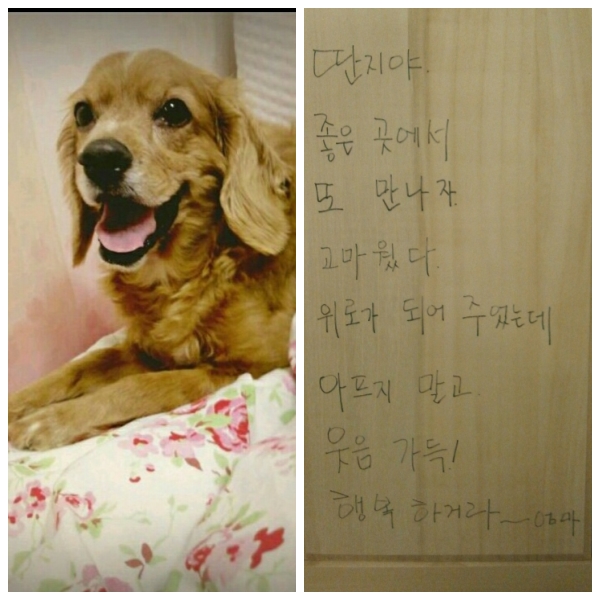 딴지야.
좋은 곳에서
또 만나자.
고마웠다.
위로가 되어 주었는데
아프지 말고.
웃음 가득!
행복 하거라~ 엄마